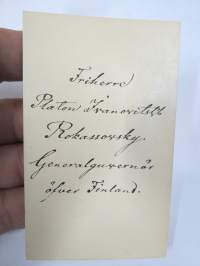 Friherre
Platon Ivanovitsch
Rokassovsky.
Generalguvernör
öfver Finland.